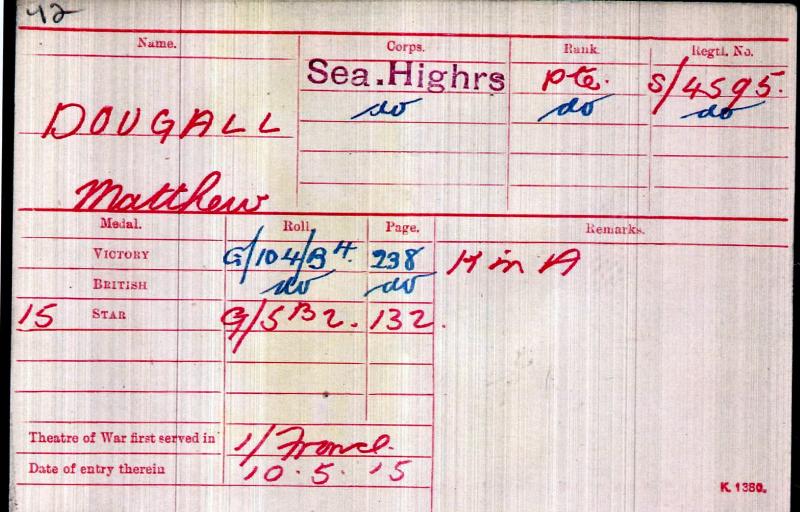 42
Name. Corps. Rank. Regtl. No.
Sea.Highrs Pte. S/4595.
DOUGALL do do do
Matthew
Medal. Roll. Page. Remarks.
VICTORY G/104/B4. 238 K in A
BRITISH do do
15 STAR G/5B2. 132.
Theatre of War first served in 1/France.
Date of entry therein 10.5.15
K. 1380.